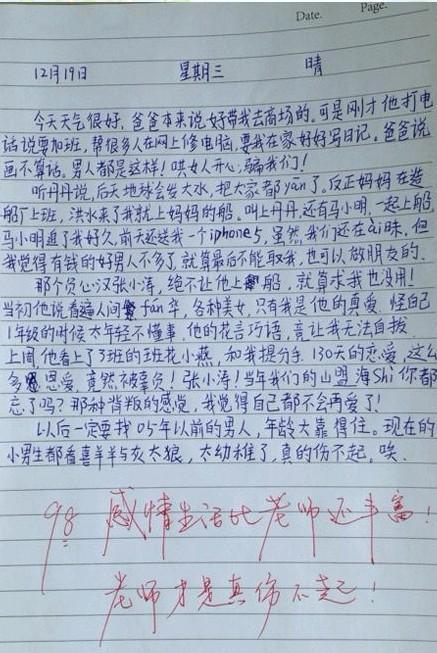 Date. Page.
12月19日 星期三 晴
今天天气很好,爸爸本来说好带我去商场的。可是刚才他打电
话说要加班,帮很多人在网上修电脑,要我在家好好写日记。爸爸说
画不算话。男人都是这样!哄女人开心,骗我们!
听丹丹说,后天地球会发大水,把大家都yan了。反正妈妈在造
船厂上班,洪水来了我就上妈妈的船。叫上丹丹,还有马小明,一起上船,
马小明追了我好久,前天还送我一个iphone5,虽然我们还在ai昧,但
我觉得有钱的好男人不多了,就算最后不能取我,也可以做朋友的。
那个负心汉张小涛,绝不让他上船,就算求我也没用!
当初他说看遍人间fan华,各种美女,只有我是他的真爱,怪自己
1年级的时候太年轻不懂事,他的花言巧语,竟让我无法自拔。
上周他看上了3班的班花小燕,和我提分手,130天的恋爱,这么
多恩爱,竟然被辜负!张小涛!当年我们的山盟海Shi你都
忘了吗?那种背叛的感觉,我觉得自己都不会再爱了!
以后一定要找05年以前的男人,年龄大靠得住。现在的
小男生都看喜羊羊与灰太狼,太幼稚了,真的伤不起,唉、
98 感情生活比老师还丰富!
老师才是真伤不起!